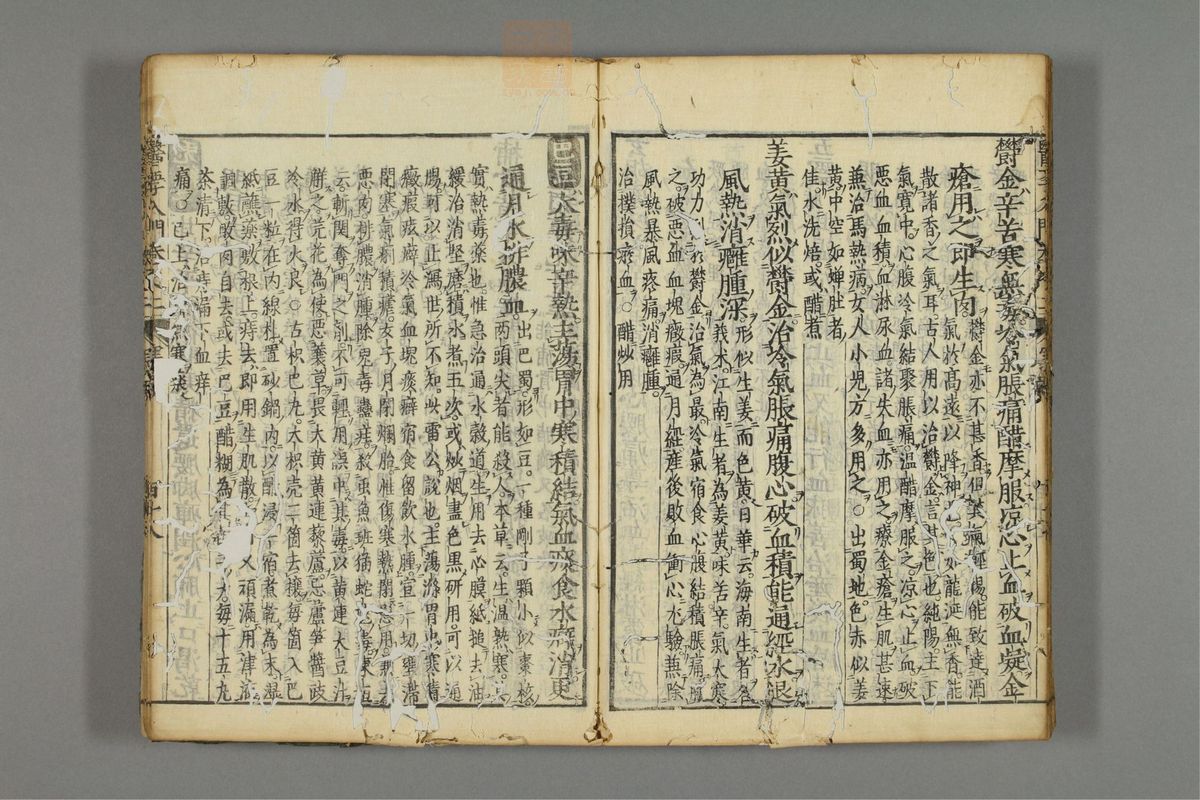 鬱金辛苦寒無毒冷氣脹痛醋摩服凉心止血破血堎金
瘡用之即生肉
鬱金亦不甚香但其氣輕揚能致達酒
氣於高遠以降神也正如龍涎無香能
散諸香之氣耳古人用以治鬱金言其也純陽主下
氣寬中心腹冷氣結聚脹痛溫醋摩服之凉心止血破
惡血血積血淋尿血諸失血亦用之療金瘡生肌甚速
兼治馬熱病女人小児方多用之○出蜀地色赤似姜
黃中空如蟬肚者
佳水洗焙或醋煮
姜黃氣烈似鬱金治冷氣脹痛腹心破血積能通經氷退
風熱消癰腫深
形似生姜而色黃日華云海南生者名
莪术江南生者為姜黃味苦辛氣大寒
功力烈鬱金治氣為最冷氣宿食心腹結積脹痛
之破惡血血塊癥瘕通月經產後敗血衝心尤驗兼除
風熱暴風疼痛消癰腫
治撲損瘀血○醋炒用
巴豆大毒味辛熱主蕩胃中寒積結氣血瘀食水癖消更
通月水排膿血
出巴蜀形如豆一種剛子顆小似棗核
兩頭尖者能殺人本草云生溫熟寒
實熱毒藥也惟急治通水穀道生用去心膜紙搥去油
緩治消堅磨積水煮五次或炒烟盡色黑研用可以通
腸可以止瀉世所不知此雷公說也主蕩滌胃中寒積
癥瘕痃癖冷氣血塊痰癖宿食留飲水腫宣一切壅滯
閉寒氣痢積
月閉爛胎
惡肉排膿消腫除鬼毒蠱疰殺虫魚斑猫蛇
云斬關奪門之劑不可輕用誤中其毒以黃連大豆汁
解之芫花為使惡蘘草畏大黃黃連藜蘆忌蘆笋醬豉
冷水得火良○古枳巴丸大枳壳一箇去穰每箇入巴
豆一粒在內線札置砂鍋內以醋浸一宿煮乾為末濕
紙
根上痔去即用生肌散
又頑漏用津液
調敷敗肉自去或去巴豆醋糊為
丸每十五丸
茶清下治痔漏下血痒
痛○已上治